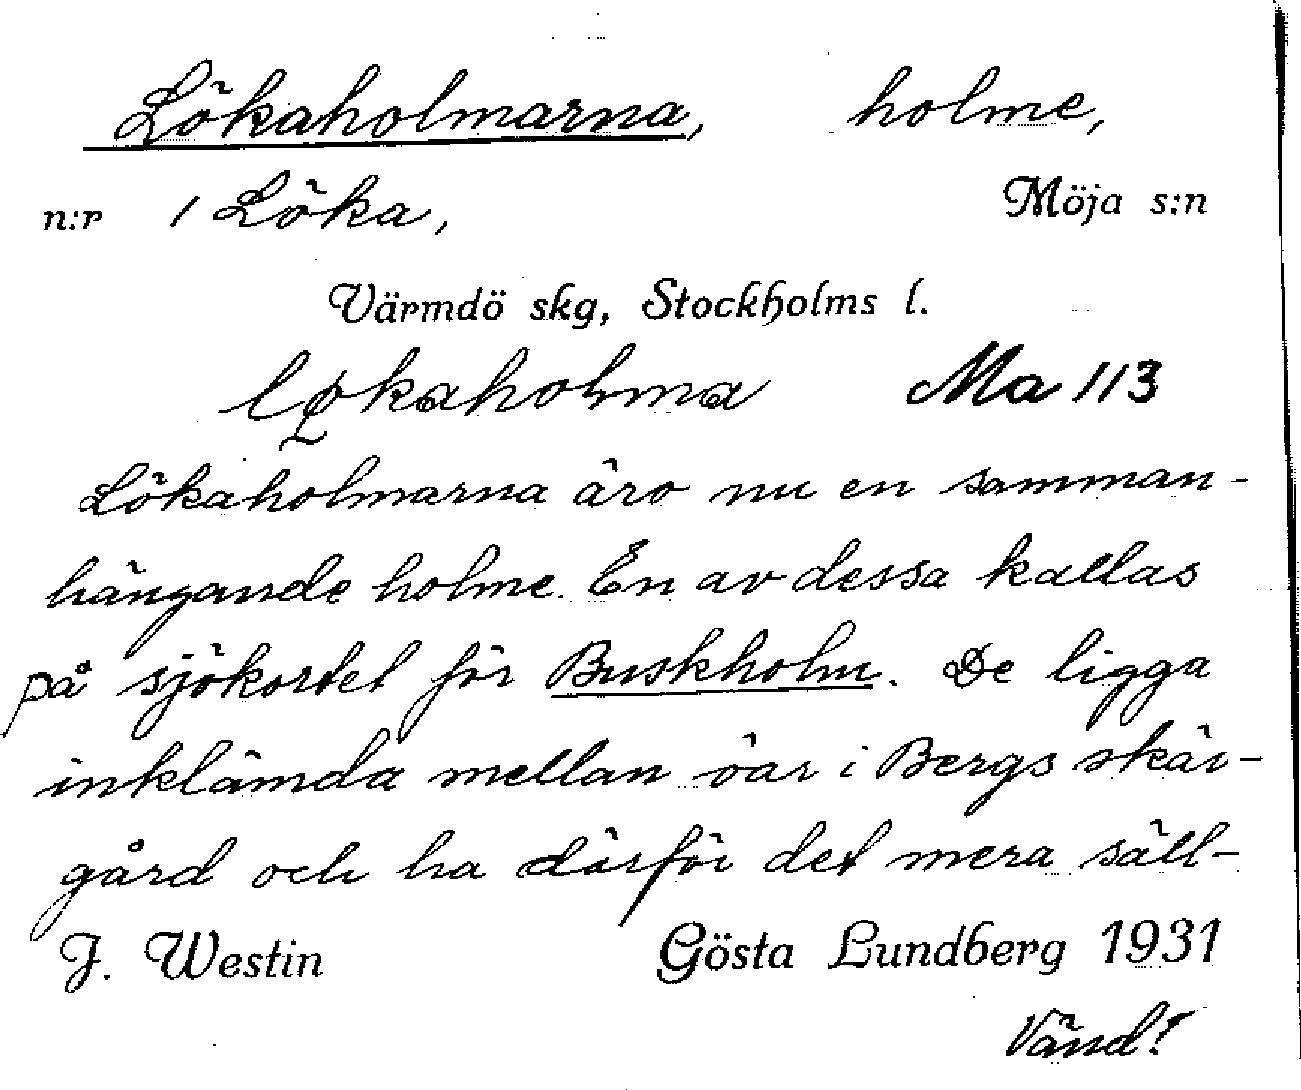 Lökaholmarna, holme,
n:r 1 Löka, Möja s:n
Värmdö skg, Stockholms l.
Ma 113
Lökaholmarna äro nu en samman-
hängande holme. En av dessa kallas
på sjökortet för Buskholm. De ligga
inklämda mellan öar i Bergs skär-
gård och ha därför det mera säll-
J. Westin Gösta Lundberg 1931
Vänd!